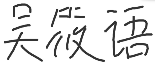 吴筱语